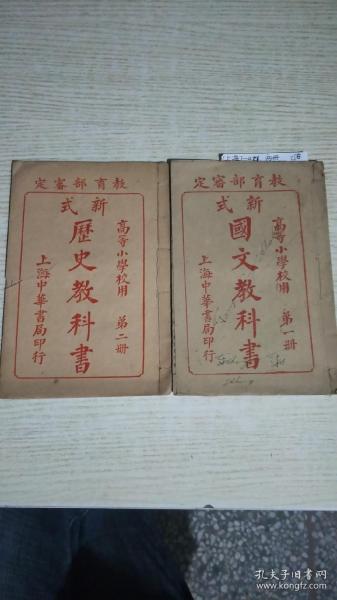 教育部審定
新式
高等小學校用
歷史教科書
第二册
上海中華書局印行
教育部審定
新式
高等小學校用
國文教科書
第一册
上海中華書局印行
孔夫子旧书网
www.kongfz.com